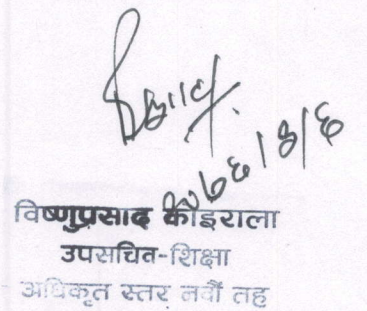 २०७६।३।६
विष्णुप्रसाद कोइराला
उपसचिव-शिक्षा
अधिकृत स्तर नवौं तह